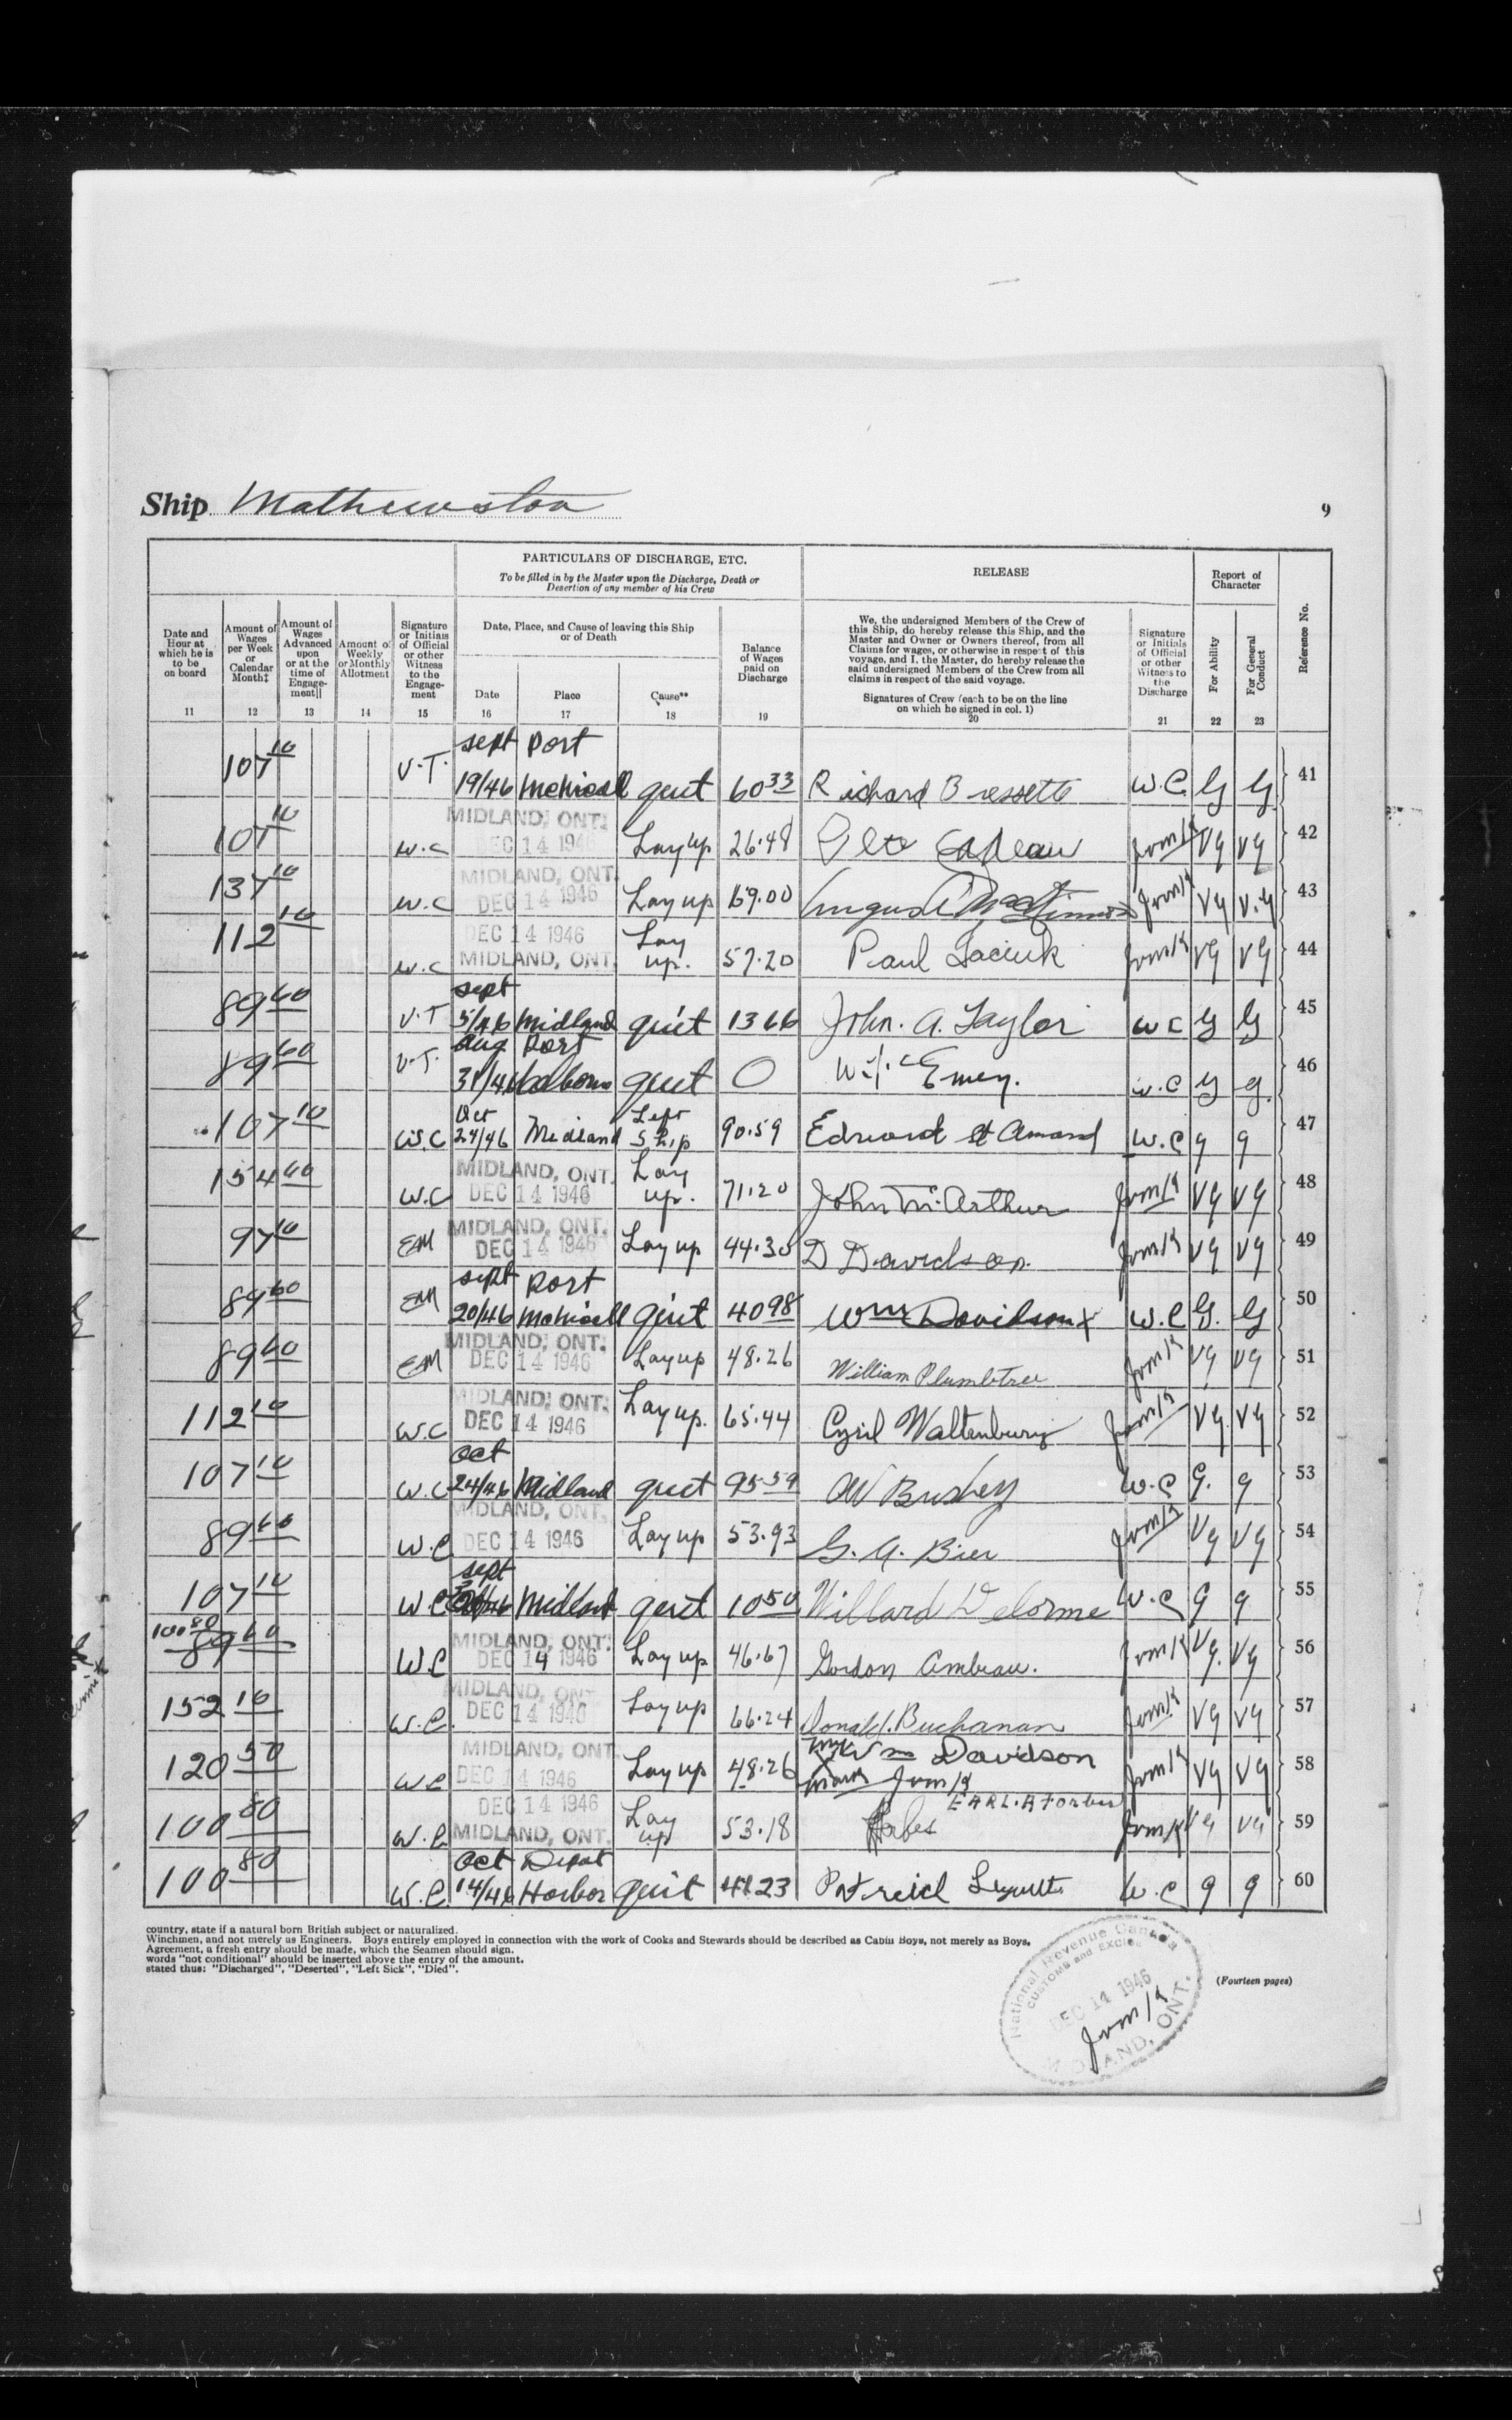 Ship Mathewston
9
PARTICULARS OF DISCHARGE, ETC.
To be filled in by the Master upon the Discharge, Death or
Desertion of any member of his Crew
RELEASE
Report of
Character
Reference No.
Date and
Hour at
which he is
to be
on board
Amount of
Wages
per Week
or
Calendar
Month‡
Amount of
Wages
Advanced
upon
or at the
time of
Engage-
ment||
Amount of
Weekly
or Monthly
Allotment
Signature
or Initials
of Official
or other
Witness
to the
Engage-
ment
Date, Place, and Cause of leaving this Ship
or of Death
Date
Place
Cause**
Balance
of Wages
paid on
Discharge
We, the undersigned Members of the Crew of
this Ship, do hereby release this Ship, and the
Master and Owner or Owners thereof, from all
Claims for wages, or otherwise in respect of this
voyage, and I, the Master, do hereby release the
said undersigned Members of the Crew from all
claims in respect of the said voyage.
Signatures of Crew (each to be on the line
on which he signed in col. 1)
Signature
or Initials
of Official
or other
Witness to
the
Discharge
For Ability
For General
Conduct
11 12 13 14 15 16 17 18 19 20 21 22 23
107 10 V.T. Sept 19/46 Port McNicoll quit 60 33 Richard Bressette W.C. G G 41
107 10 W.C MIDLAND, ONT. DEC 14 1946 Lay up 26.48 Vg Vg 42
137 10 W.C MIDLAND, ONT. DEC 14 1946 Lay up 69.00 Vg V.g 43
112 10 W.C DEC 14 1946 MIDLAND, ONT. Lay up. 57.20 Paul Vg Vg 44
89 60 V.T Sept 5/46 Midland quit 13 66 John. A. Taylor W C G G 45
89 60 V.T. Aug 31/46 Port Colborne quit 0 Emery. W.C G g. 46
107 10 W.C Oct 24/46 Midland Left Ship 90.59 Edward St Amand W.C g g 47
154 60 W.C MIDLAND, ONT. DEC 14 1946 Lay up. 71.20 John McArthur Vg Vg 48
97 10 EM MIDLAND, ONT. DEC 14 1946 Lay up 44.30 D Davidson. Vg Vg 49
89 60 EM Sept 20/46 Port McNicoll quit 40 98 Wm Davidson x W.C G. G 50
89 60 EM MIDLAND, ONT. DEC 14 1946 Lay up 48.26 William Plumbtree Vg Vg 51
112 10 W.C MIDLAND, ONT. DEC 14 1946 Lay up. 65.44 Cyril Waltenbury Vg. Vg 52
107 10 W.C Oct 24/46 Midland quit 95 59 AW Bushey W.C G. g 53
89 60 W.C MIDLAND, ONT. DEC 14 1946 Lay up 53.93 G. A. Bier Vg Vg 54
107 10 W.C Sept Midland quit 10 50 Willard Delorme W.C g g 55
100 80 89 60 W.C MIDLAND, ONT. DEC 14 1946 Lay up 46.67 Gordon Ambeau. Vg. Vg 56
152 10 W.C. MIDLAND, ONT DEC 14 1946 Lay up 66.24 Donald J. Buchanan Vg Vg 57
120 50 W.C MIDLAND, ONT. DEC 14 1946 Lay up 48.26 Wm Davidson mark Vg Vg 58
100 80 W.C. DEC 14 1946 MIDLAND, ONT. Lay up 53.18 EARL. A Forbes Vg Vg 59
100 80 W.C. Oct 14/46 Depot Harbor quit 41 23 W.C g g 60
country, state if a natural born British subject or naturalized.
Winchmen, and not merely as Engineers. Boys entirely employed in connection with the work of Cooks and Stewards should be described as Cabin Boys, not merely as Boys.
Agreement, a fresh entry should be made, which the Seamen should sign.
words "not conditional" should be inserted above the entry of the amount.
stated thus: "Discharged", "Deserted", "Left Sick", "Died".
(Fourteen pages)
National Revenue Canada
CUSTOMS and EXCISE
DEC 14 1946
MIDLAND, ONT.